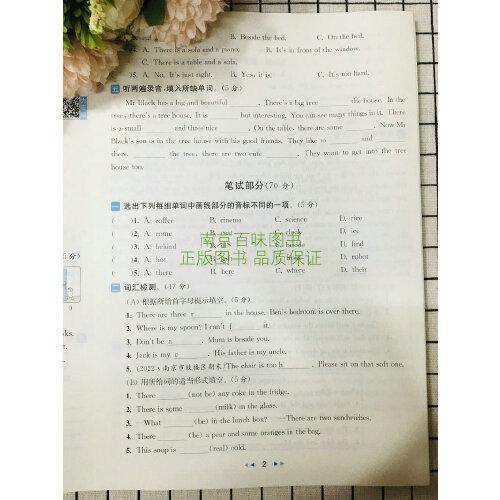 and a B. Beside the bed. C. On the bed.
)4. A. There is a sofa and a piano. B. It's in front of the window.
C. There is a table and a sofa.
)5. A. No. It's just right. B. Yes, it is. C. It's too hard.
五 听两遍录音,填入所缺单词。(5 分)
Mr Black has a big and beautiful ______. There's a big tree ______ the house. In the
tree, there's a tree house. It is ______ but interesting. You can see many things in it. There
is a small ______ and three nice ______. On the table, there are some ______. Now Mr
Black's son is in the tree house with his good friends. They like to ______ and ______
there. ______ the tree, there are two cute ______. They want to get into the tree
house too.
笔试部分(70 分)
一 选出下列每组单词中画线部分的音标不同的一项。(5 分)
( )1. A. coffee B. cinema C. science D. rice
( )2. A. come B. C. D. ice
( )3. A. behind B. C. D. find
( )4. A. hot B. C. D. robot
( )5. A. there B. here C. where D. their
南京百味图书
正版图书 品质保证
二 词汇检测。(17 分)
(A) 根据所给首字母提示填空。(5 分)
1. There are three r______ in the house. Ben's bedroom is over there.
2. Where is my spoon? I can't f______ it.
3. Don't be a______. Mum is beside you.
4. Jack is my c______. His father is my uncle.
5. (2022·南京市鼓楼区期末)The chair is too h______. Please sit on that soft one.
(B) 用所给词的适当形式填空。(5 分)
1. There ______ (not be) any coke in the fridge.
2. There is some ______ (milk) in the glass.
3. —What ______ (be) in the lunch box? —There are two sandwiches.
4. There ______ (be) a pear and some oranges in the bag.
5. This soup is ______ (real) cold.
2
5 分)
ks.